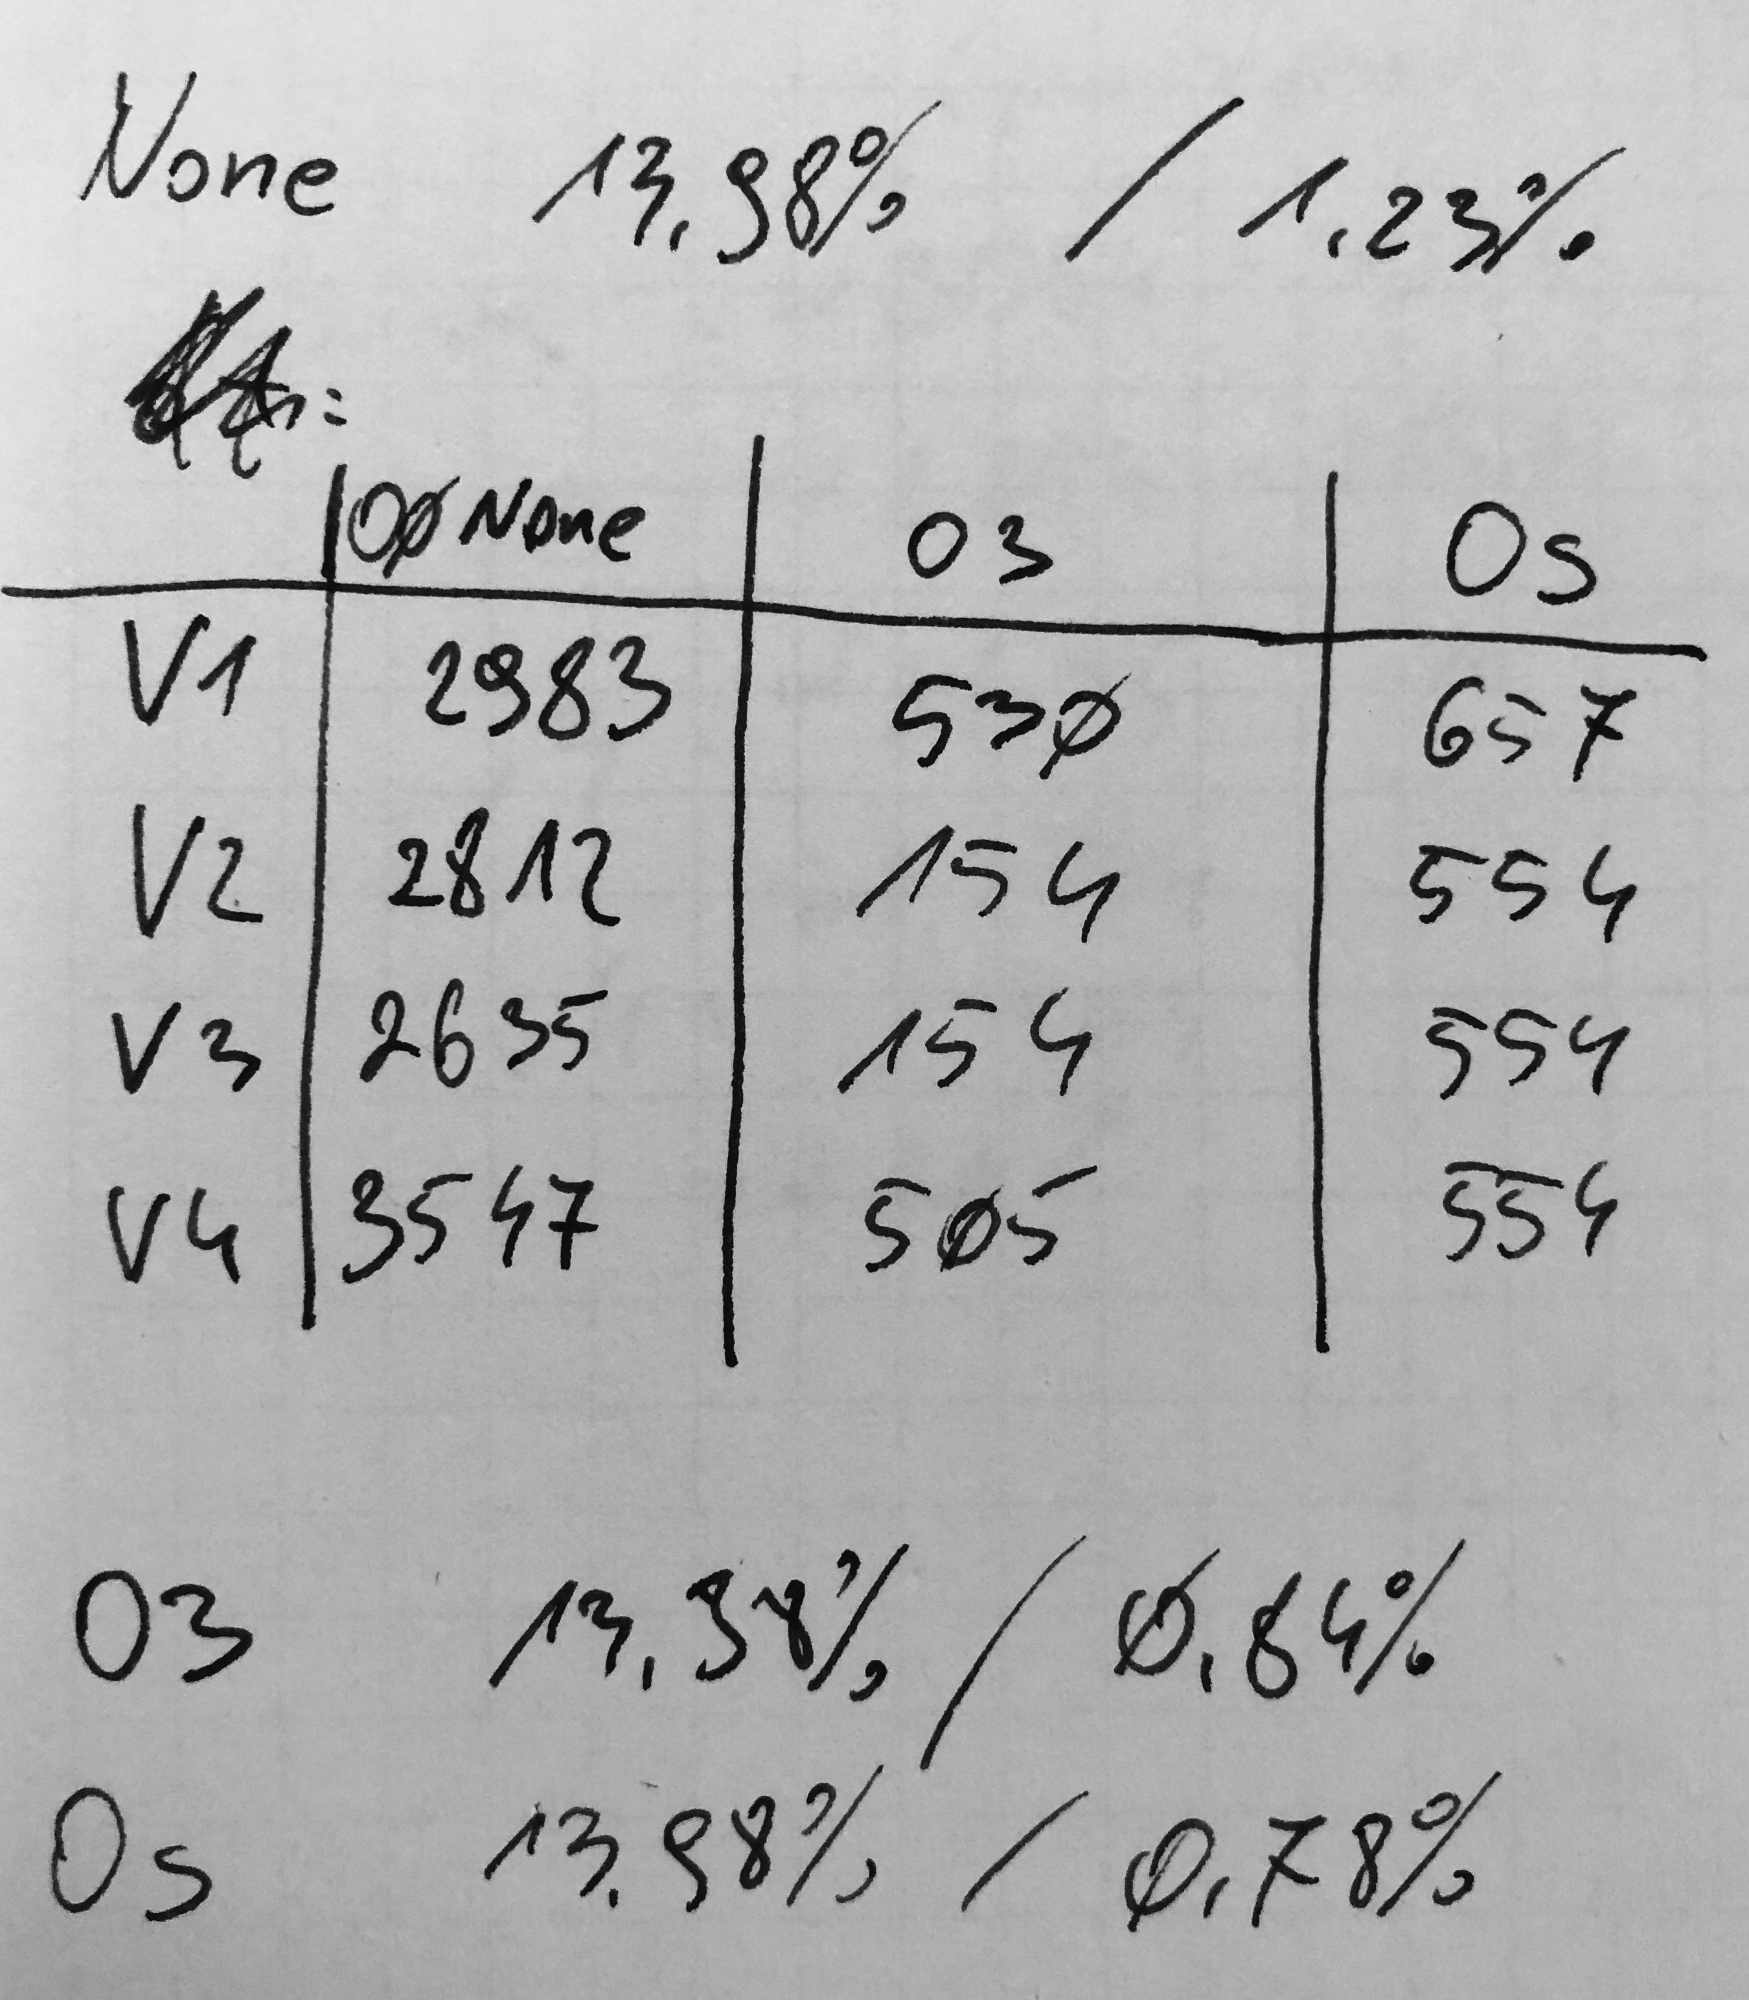 None 13,98% / 1,23%
OØ None O3 Os
V1 2983 53Ø 657
V2 2812 154 554
V3 2635 154 554
V4 3547 5Ø5 554
O3 13,98% / Ø,84%
Os 13,98% / Ø,78%